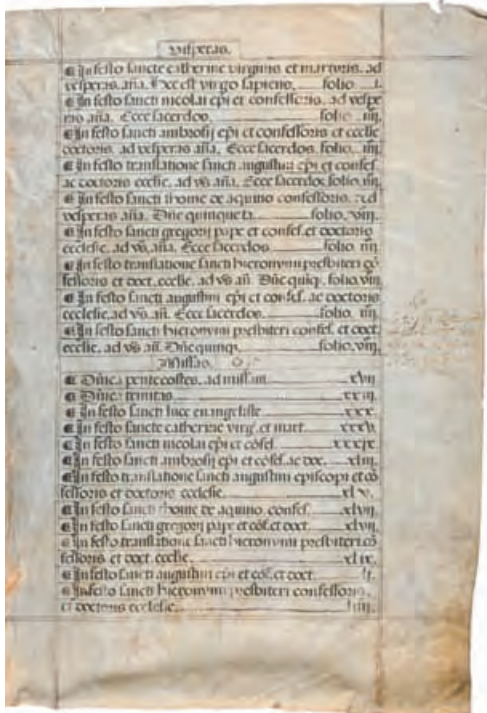 Vesperas.
In festo sancte catherine virginis et martyris. ad
vesperas. aña. Hec est virgo sapiens. folio. i.
In festo sancti nicolai epi et confessoris. ad vespe
ras aña. Ecce sacerdos. folio. iiij.
In festo sancti ambrosij epi et confessoris et ecclie
doctoris. ad vesperas aña. Ecce sacerdos. folio. iiij.
In festo translatione sancti augustini epi et confes.
ac doctoris ecclie. ad vs aña. Ecce sacerdos folio. iiij.
In festo sancti thome de aquino confessoris. ad
vesperas aña. Dñe quinque ta. folio. viij.
In festo sancti gregorij pape et confes. et doctoris
ecclesie. ad vs. aña. Ecce sacerdos. folio. iiij.
In festo translatione sancti hieronymi presbiteri cō
fessoris et doct. ecclie. ad vs añ. Dñe quinq. folio. viij.
In festo sancti augustini epi et confes. ac doctoris
ecclesie. ad vs. añ. Ecce sacerdos. folio. iiij.
In festo sancti hieronymi presbiteri confes. et doct.
ecclie. ad vs añ. Dñe quinq. folio. viij.
Missas.
Dñica pentecostes. ad missam xvij
Dñica trinitatis
In festo sancti luce euangeliste xxx.
In festo sancte catherine virg. et mart.
In festo sancti nicolai epi et cōfes. xxxix.
In festo sancti ambrosij epi et cōfes. ac doc. xliij.
In festo translatione sancti augustini episcopi et cō
fessoris et doctoris ecclesie. xlv.
In festo sancti thome de aquino. confes. xlvij.
In festo sancti gregorij pape et cōf. et doct. xlvij.
In festo translatione sancti hieronymi presbiteri cō
fessoris et doct. ecclie. xlix.
In festo sancti augustini epi et cōf. et doct. li.
In festo sancti hieronymi presbiteri confessoris.
et doctoris ecclesie. liiij.